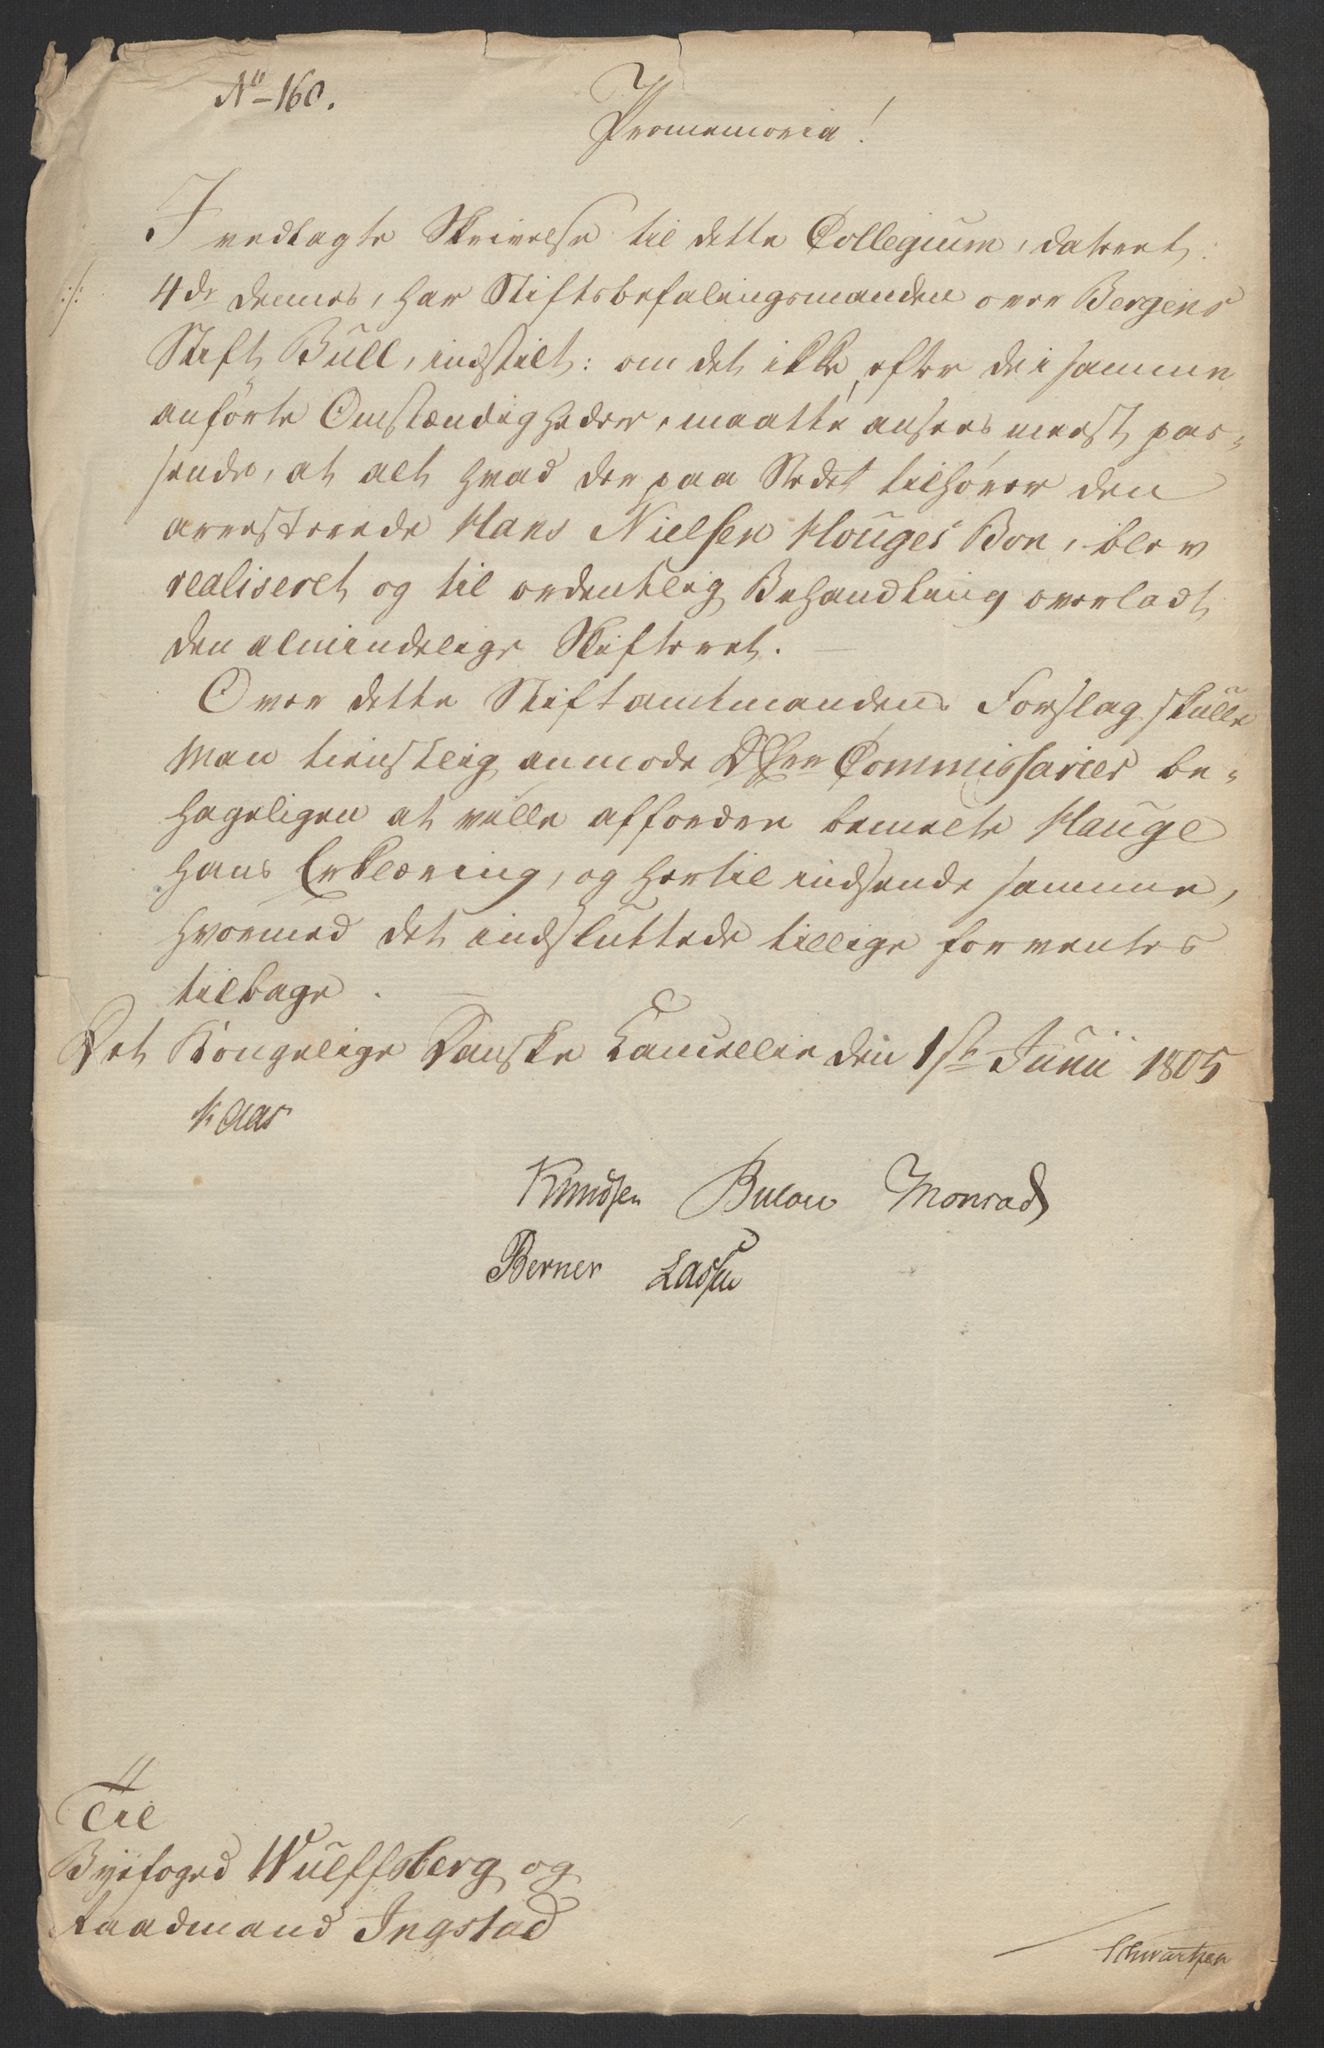 No 160.
Promemoria!
I vedlagte Skrivelse til dette Collegium, dateret
:/: 4de dennes, har Stiftsbefalingsmanden over Bergens
Stift Bull, indstilt: om det ikke, efter de i samme
anførte Omstændigheder, maatte ansees meest pas-
sende, at alt hvad der paa Stedet tilhører den
arresterede Hans Nielsen Houges Boe, blev
realiseret og til ordentlig Behandling overladt
den almindelige Skifteret.
Over dette Stiftamtmandens Forslag skulle
Man tienstlig anmode DHrr Commissarier be-
hageligen at ville affordre bemelte Hauge
hans Erklæring, og hertil indsende samme,
hvormed det indsluttede tillige forventes
tilbage.
Det Kongelige Danske Cancellie den 1ste Junii 1805
Kaas
Knudsen Bülow Monrad
Berner Lassen
Til
Byefoged Wulffsberg og
Raadmand Ingstad
Schwartzen